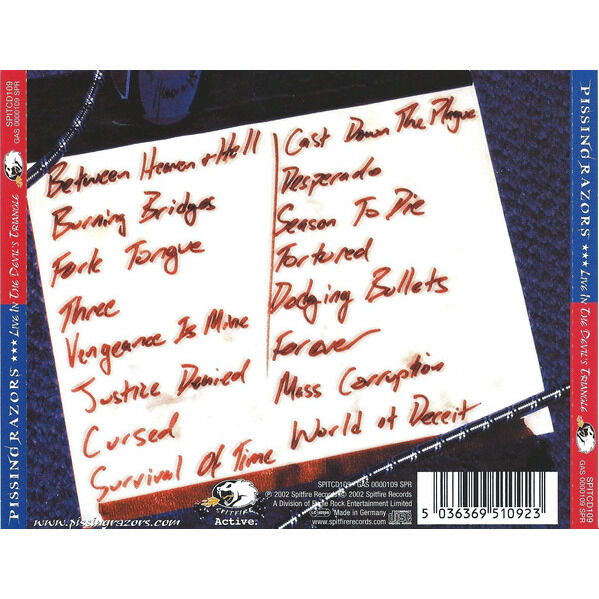 SPITCD109
GAS 0000109 SPR
PISSING RAZORS ★★★ LIVE IN THE DEVIL'S TRIANGLE
Between Heaven + Hell
Burning Bridges
Fork Tongue
Three
Vengeance Is Mine
Justice Denied
Cursed
Survival Of Time
Cast Down The Plague
Desperado
Season To Die
Tortured
Dodging Bullets
Forever
Mass Corruption
World of Deceit
www.pissingrazors.com
SPITFIRE
Active.
SPITCD109 · GAS 0000109 SPR
℗ 2002 Spitfire Records © 2002 Spitfire Records
A Division of Eagle Rock Entertainment Limited
Made in Germany
www.spitfirerecords.com
5 036369 510923
PISSING RAZORS ★★★ LIVE IN THE DEVIL'S TRIANGLE
SPITCD109
GAS 0000109 SPR